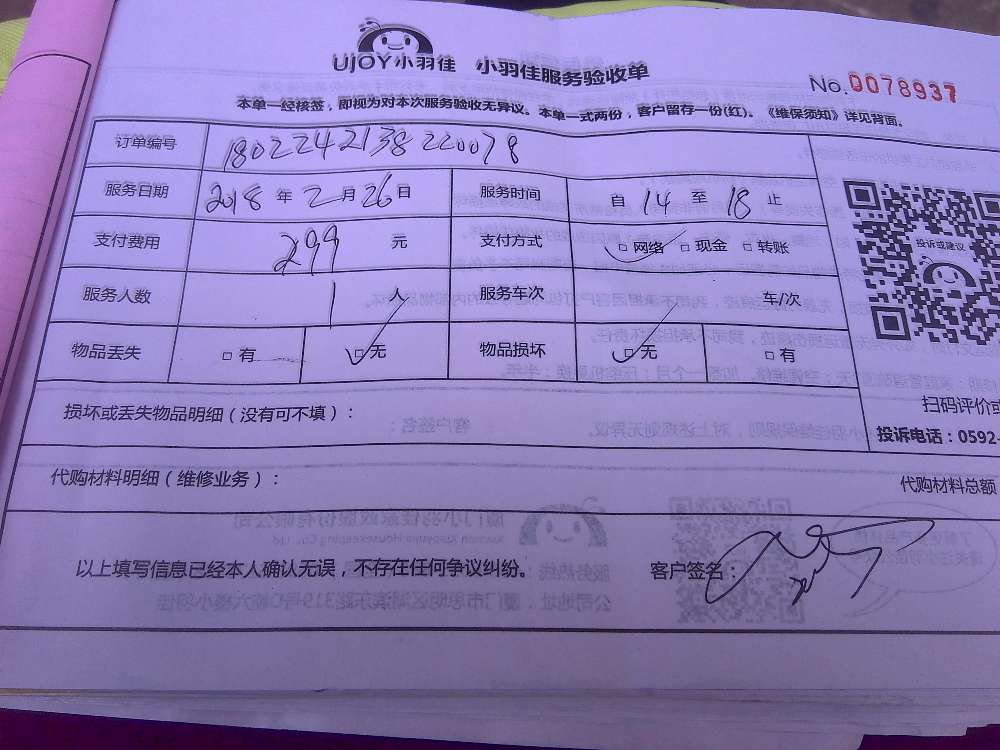 UJOY小羽佳 小羽佳服务验收单
No.0078937
本单一经核签，即视为对本次服务验收无异议。本单一式两份，客户留存一份(红)。《维保须知》详见背面。
订单编号 1802242138220078
服务日期 2018年2月26日 服务时间 自14至18止
支付费用 299元 支付方式 □网络 □现金 □转账
投诉或建议
服务人数 1人 服务车次 车/次
物品丢失 □有 □无 物品损坏 □无 □有
扫码评价或
损坏或丢失物品明细（没有可不填）：
投诉电话：0592-
代购材料明细（维修业务）：
代购材料总额
以上填写信息已经本人确认无误，不存在任何争议纠纷。 客户签名：